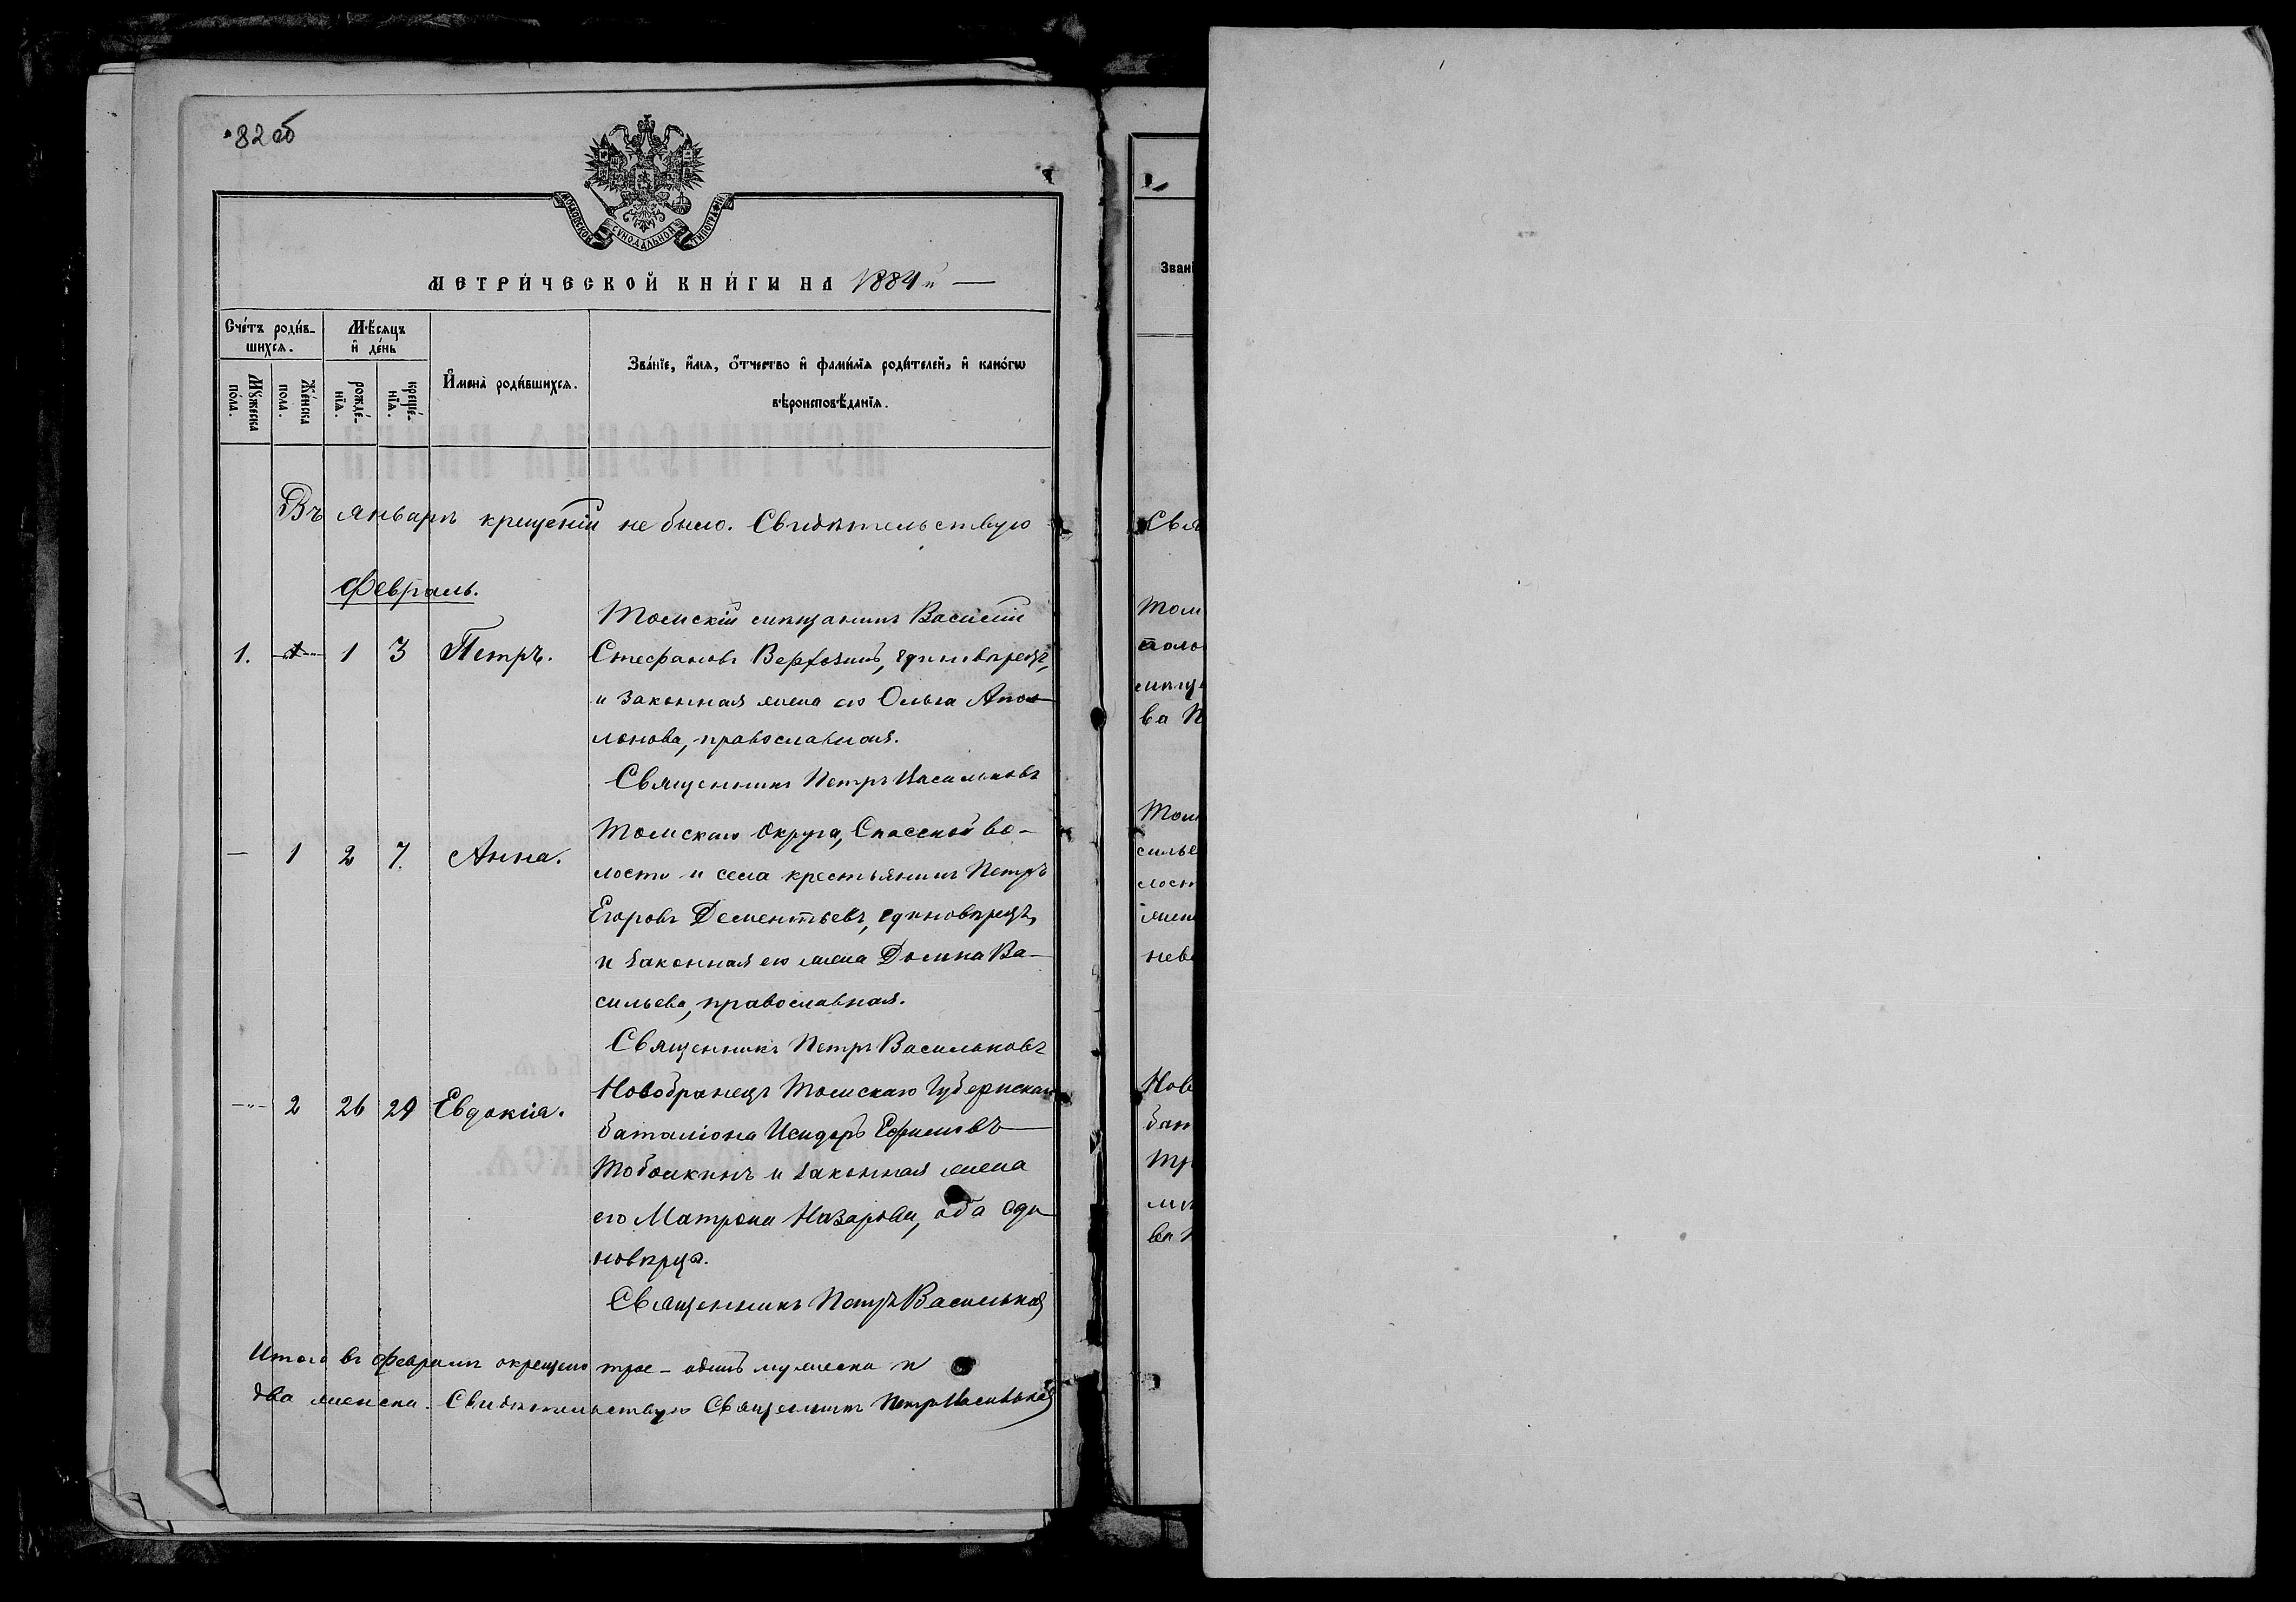 82 об
МОСКОВСКОЙ СѴНОДАЛЬНОЙ ТИПОГРАФІИ
МЕТРИ́ЧЕСКОЙ КНИ́ГИ НА 1884 "
Сче́тъ роди́в-
шихсѧ.
Мѣ́сѧцъ
и҆ де́нь
И҆мена̀ роди́вшихсѧ.
Зва́нїе, и҆́мѧ, ѻ҆́тчество и҆ фами́лїѧ роди́телей, и҆ како́гѡ
вѣроисповѣ́данїѧ.
Мꙋ́жеска
по́ла.
Же́нска
пола.
рожде́-
нїѧ.
креще́-
нїѧ.
Въ январѣ крещеній не было. Свидѣтельствую
Февраль.
1. 1 3 Петръ.
Томскій мѣщанинъ Василій
Стефановъ единовѣрецъ,
и законная жена его Ольга Апол
лонова, православная.
Священникъ Петръ Васильковъ
— 1 2 7. Анна.
Томскаго Округа, Спасской во-
лости и села крестьянинъ Петръ
Егоровъ Дементьевъ, единовѣрецъ,
и законная его жена Домна Ва-
сильева, православная.
Священникъ Петръ Васильковъ
-"- 2 26 29 Евдокія.
Новобранецъ Томскаго Губернскаго
баталіона Исидоръ Ефимовъ
Тоболкинъ и законная жена
его Матрона Назарова, оба еди
новѣрца.
Священникъ Петръ Васильковъ
Итого въ Февралѣ окрещено трое - одинъ мужеска и
два женска. Свидѣтельствую Священникъ Петръ Васильковъ
Звані
Свя
Том
поло
мѣщ
ва П
Том
силье
лост
жен
нева
Нов
бат
Тр
ва